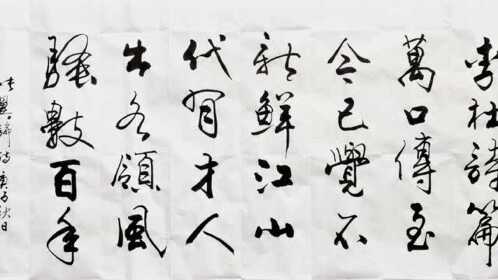 李杜詩篇
萬口傳至
今已覺不
新鮮江山
代有才人
出各領風
騷數百年
翼詩庚子秋日